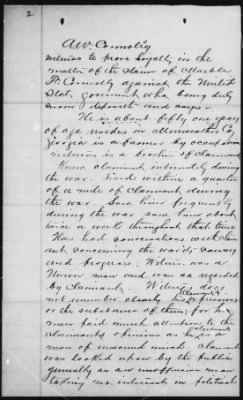 2
A.W. Connolly
witness to prove loyalty in the
matter of the claim of
H. Connolly against the United
States, government who being duly
sworn deposeth and says.
He is about fifty one years
of age resides in Co,
Georgia is a farmer by occupation
witness is a brother of claimant
Knew claimant intimately during
the war. Lived within a quarter
of a mile of Claimant during
the war. Saw him frequently
during the war saw him about
twice a week throughout that time
Has had conversations with claim
ant concerning the war, its causes
and progress. Witness was a
Union man and was so regarded
by Claimant. Witness does
not remember clearly Claimant's expressions,
or the substance of them, for he
never paid much attention to
claimants opinions as he is a
man of unsound mind. Claimant
was looked upon by the public
generally as an inoffensive man
taking no interest in political